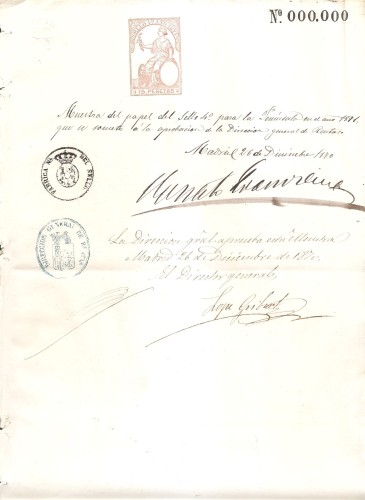 Nº 000.000
15 PESETAS
Muestra del papel del Sello 4º para la Península en el año 1881,
que se somete á la aprobacion de la Direccion general de Rentas.
Madrid 26 de Diciembre 1880
FABRICA NAL DEL SELLO
La Direccion gral aprueba esta Muestra
Madrid 26 de Diciembre de 1880.
El Director general,
DIRECCION GENERAL DE RENTAS